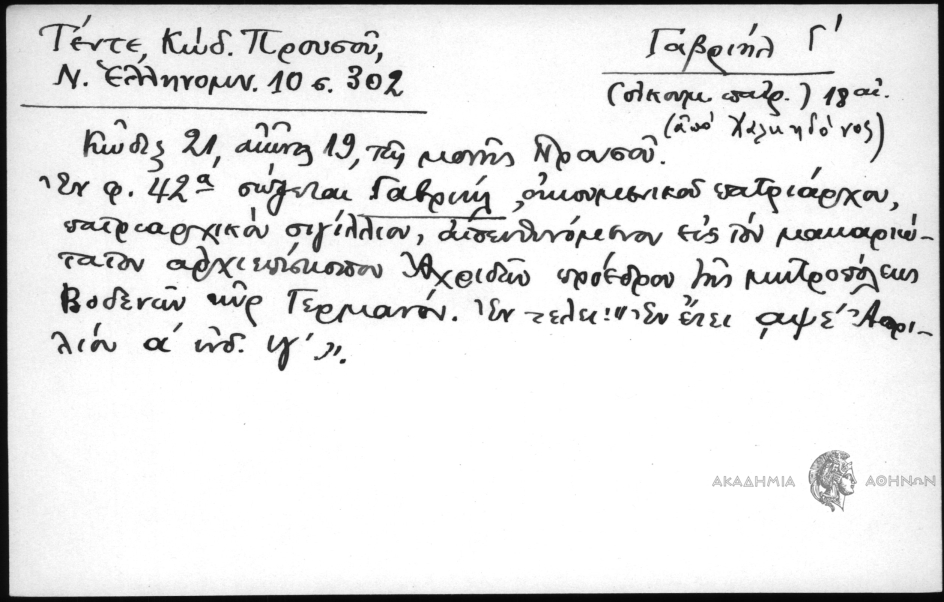 Τέντε, Κώδ. Προυσοῦ,
Ν. Ἑλληνομν. 10 σ. 302
Γαβριήλ Γ΄
(οἰκουμ. πατρ.) 18 αἰ.
(ἀπό Χαλκηδόνος)
Κῶδιξ 21, αἰῶνος 19, τῆς μονῆς Προυσοῦ.
Ἐν φ. 42α σώζεται Γαβριήλ, οἰκουμενικοῦ πατριάρχου,
πατριαρχικόν σιγίλλιον, ἀπευθυνόμενον εἰς τόν μακαριώ-
τατον ἀρχιεπίσκοπον Ἀχριδῶν πρόεδρον τῆς μητροπόλεως
Βοδενῶν κύρ Γερμανόν. Ἐν τέλει: "Ἐν ἔτει ͵αψε΄ Ἀπρι-
λίου α΄ ἰνδ. ιγ΄".
ΑΚΑΔΗΜΙΑ ΑΘΗΝΩΝ